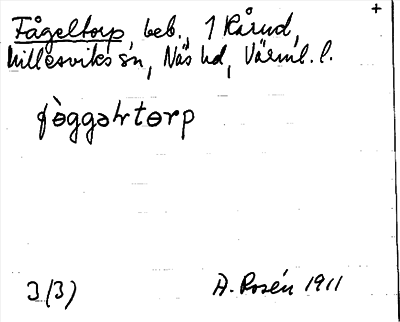 +
Fågeltorp, beb., 1 Rårud,
Millesviks sn, Näs hd, Värml. l.
fòggəɫtorp
3 (3) A. Rosén 1911